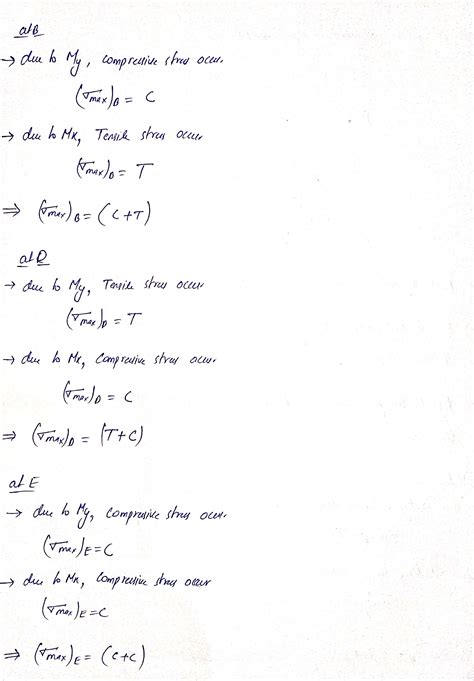 at B
→ due to My, compressive stress occur.
(σmax)B = C
→ due to Mx, Tensile stress occur
(σmax)B = T
⇒ (σmax)B = (C+T)
at D
→ due to My, Tensile stress occur
(σmax)D = T
→ due to Mx, compressive stress occur.
(σmax)D = C
⇒ (σmax)D = (T+C)
at E
→ due to My, compressive stress occur.
(σmax)E = C
→ due to Mx, compressive stress occur
(σmax)E = C
⇒ (σmax)E = (C+C)